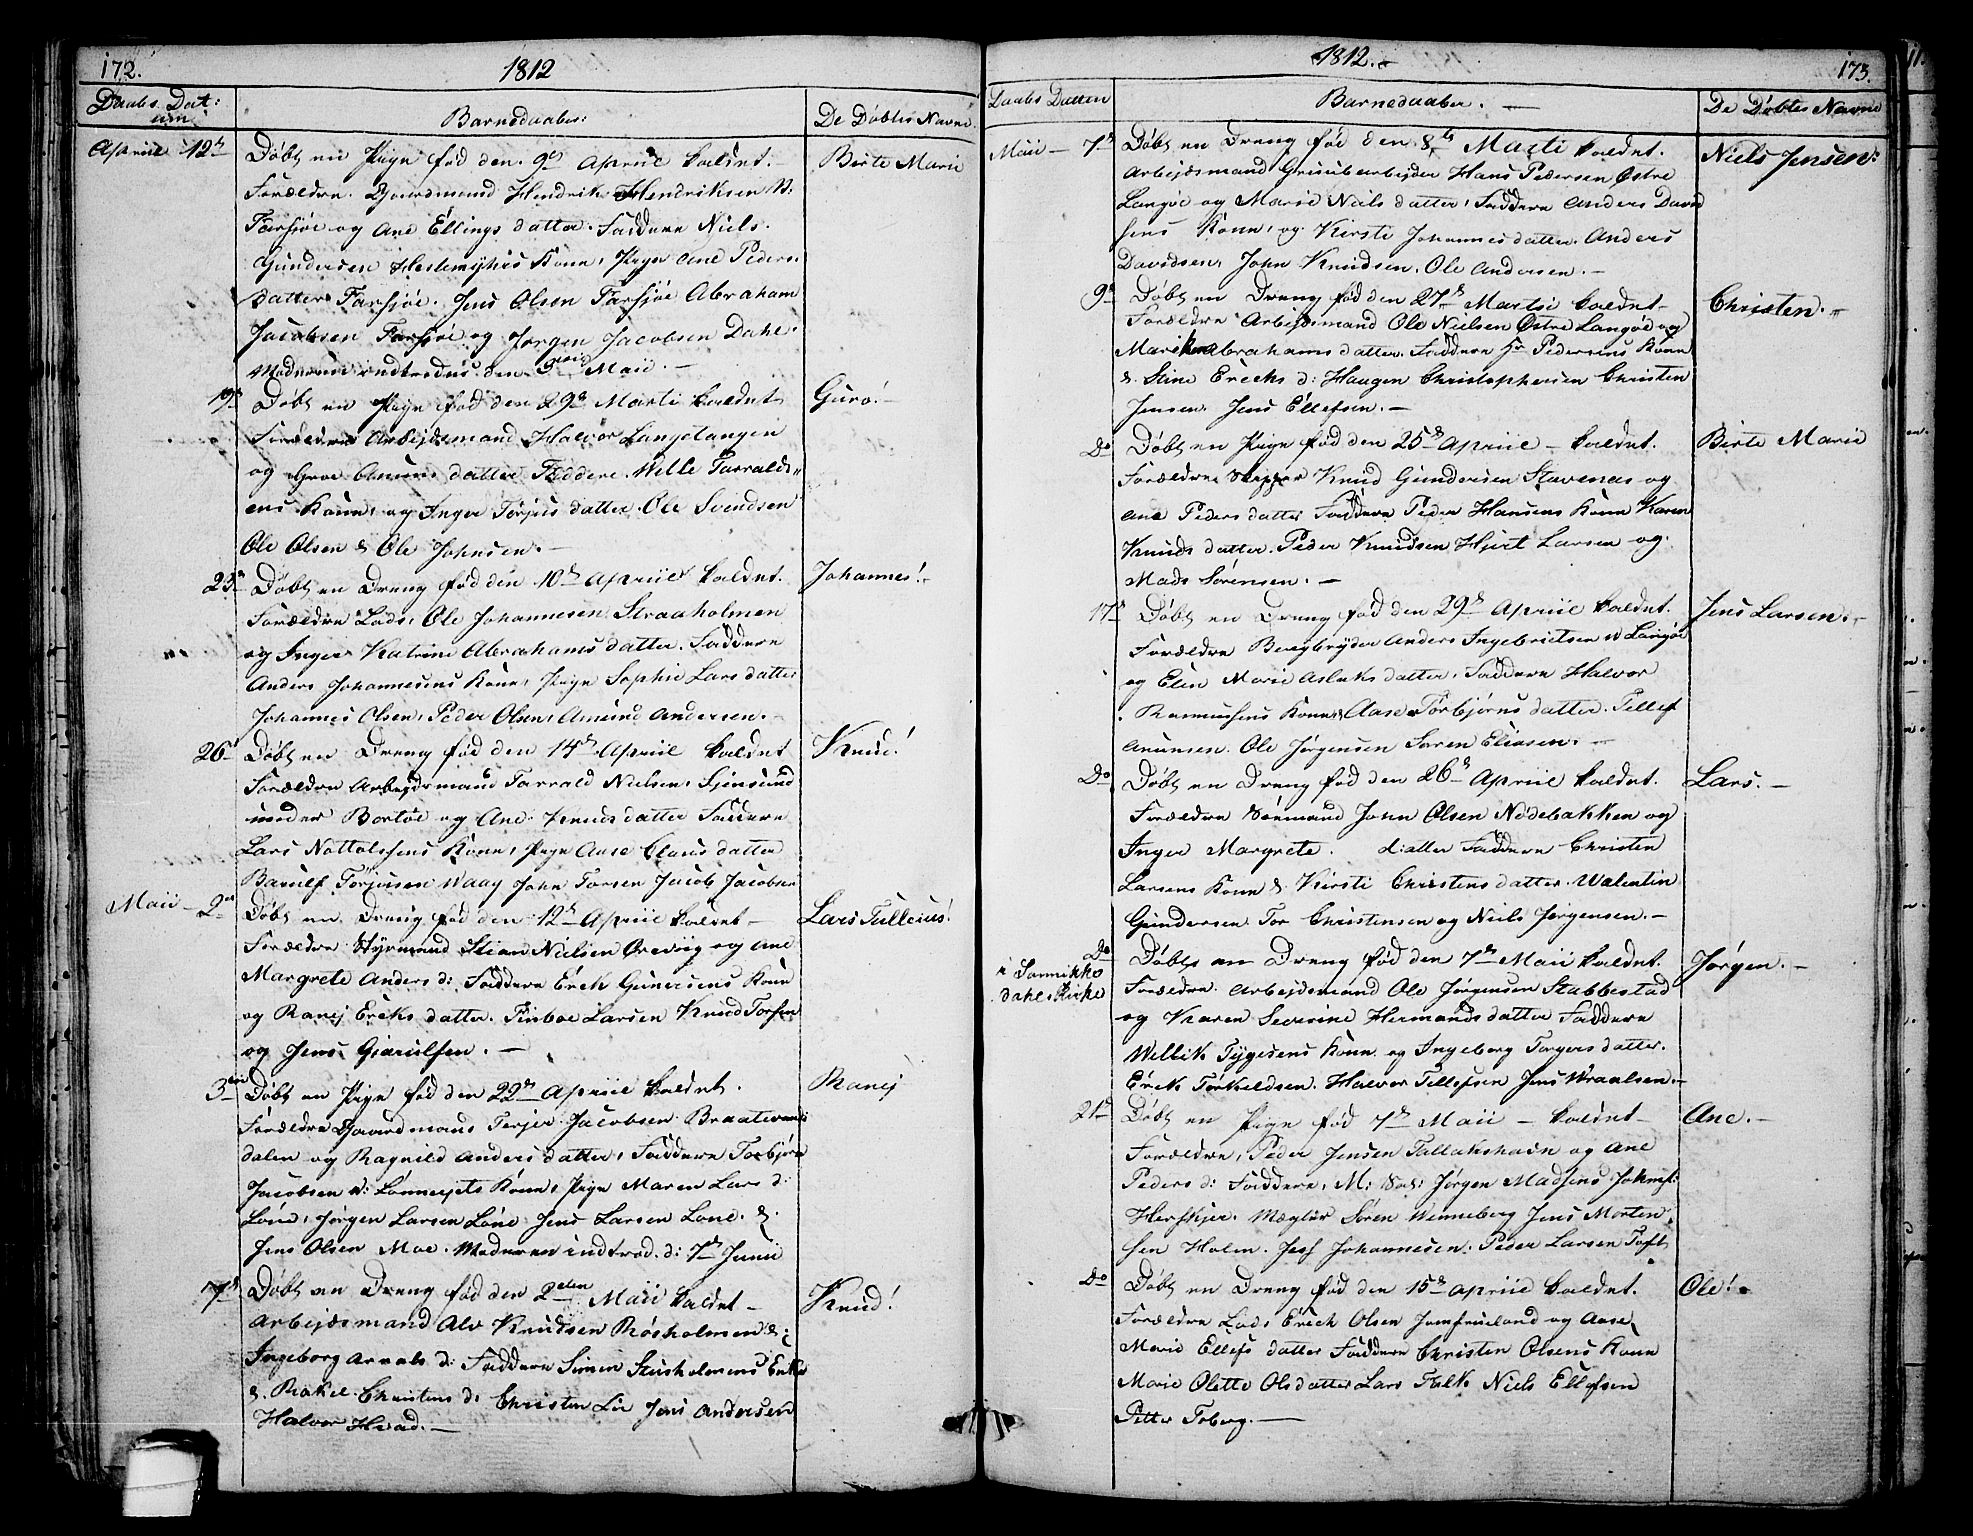 172.
1812
Daabs Dat:
um
Barnedaaber:
De Döbtes Navne
Apriil 12te
Döbt en Pige föd den 9de Apriil kaldet
Birte Marie
Forældre. Gaardmand Hendrik Hendriksen N.
Farsjöe og Ane Ellings datter. Faddere Niels
Gundersen Hestemyhrs Kone, Pige Ane Peders
datter Farsjöe. Jens Olsen Farsjöe Abraham
Jacobsen Farsjöe og Jörgen Jacobsen Dahl
Moderens indtredes den Maii. —
19de
Döbt en Pige föd den 29de Marti kaldet
Guro. —
Forældre Arbejdsmand Halvor Langetangen
og Groe Amunds datter Faddere. Wille Tarralds
ens Kone, og Inger Torjus datter. Ole Svendsen
Ole Olsen & Ole Johnsen. —
23de
Döbt en Dreng föd den 10de Apriil kaldet.
Johannes! —
Forældre Lods, Ole Johannesen Straaholmen
og Inger Katrine Abrahams datter. Faddere
Anders Johannesens Kone, Pige Sophie Lars datter
Johannes Olsen, Peder Olsen, Amund Andersen. —
26de
Döbt en Dreng föd den 14de Apriil kaldet
Knud!
Forældre Arbejdsmand Tarrald Nielsen,
Bortöe og Ane Knuds datter Faddere
Lars Nottolfsens Kone, Pige Aase Claus datter
Torjusen Waag John Torsen Jacob Jacobsen
Maii — 2den
Döbt en Dreng föd den 12te Apriil kaldet —
Lars Tullerius!
Forældre Styrmand Stian Nielsen Örevig og Ane
Margrete Anders d: Faddere Erich Gunersens Kone
og Ranej Ericks datter. Finboe Larsen Knud Torsen
og Jens Giarulfsen. —
3die
Döbt en Pige föd den 22de Apriil kaldet.
Ranej
Forældre Gaardmand Terjer Jacobsen Braatevands
dalen og Ragnild Anders datter, Faddere Torbjörn
Jacobsen N: Lönnejets Kone, Pige Maren Lars d:
Löne, Jörgen Larsen Löne Jens Larsen Lone. &
Jens Olsen Moe. Moderen indtrad. d: 7de Junii
7de
Döbt en Dreng föd den 2den Maii kaldet —
Knud!
Arbejdsmand Alv Knudsen Rösholmen &
Ingeborg Arvals d: Faddere Simen Enke
& Rakel Christens d: Christen Lie Jens Andersen
Halvor —
1812. —
173.
Daabs Datten
Barnedaaber. —
De Döbtes Navne
Maii — 7de
Döbt en Dreng föd den 8te Marti kaldet.
Niels Jensen:
Arbejdsmand Grubearbejder Hans Pedersen Östre
Langöe og Marie Niels datter, Faddere Anders David
sens Kone, og Kirsti Johannes datter. Anders
Davidsen, John Knudsen, Ole Andersen. —
9de
Döbt en Dreng föd den 27de Martii kaldet —
Christen. —
Forældre Arbejdsmand Ole Nielsen Östre Langöe og
Maricken Abrahams datter. Faddere Hr Pedersens Kone
& Stine Ericks d: Haagen Christophersen Christen
Jensen. Jens Ellefsen. —
Do
Döbt en Pige föd den 25de Apriil — kaldet.
Birte Marie
Forældre Skipper Knud Gundersen Stavenæs og
Ane Peders datter Faddere Peder Hansens Kone Karen
Knuds datter. Peder Knudsen Hjort Larsen og
Mads Sörensen. —
17de
Döbt en Dreng föd den 29de Apriil kaldet.
Jens Larsen. —
Forældre Bergbryder Anders Ingebrictsen W Langöe
og Elen Marie Aslaks datter, Faddere Halvor
Rasmussens Kone, Aase Torbjörns datter. Tellef
Anunsen. Ole Jörgensen Soren Eliasen. —
Do
Döbt en Dreng föd den 26de Apriil kaldet.
Lars. —
Forældre Sömand John Olsen Nödebakken og
Inger Margrete. datter Faddere Christen
Larsens Kone & Kirsti Christens datter. Walentin
Gundersen Tor Christensen og Niels Jörgensen. —
Do
i Sannikke
dahls Kirke
Döbt en Dreng föd den 7de Maii kaldet.
Jörgen. —
Forældre. Arbejdsmand Ole Jörgensen Stabbestad
og Karen Severine Hermands datter Faddere
Wellik Tygesens Kone og Ingeborg Torgers datter.
Erick Torkeldsen. Halvor Tellefsen Jens Wraalsen. —
21de
Döbt en Pige föd 7de Maii — kaldet —
Ane. —
Forældre, Peder Jensen Tallakshavn og Ane
Peders d: Faddere, M: Jörgen Madsens
Mægler Sören Wenneberg Jens Morten
sen Holm. Johannesen. Peder Larsen Toft
Do
Döbt en Dreng föd den 15de Apriil kaldet.
Ole! —
Forældre Lods, Erich Olsen Jomfrueland og Aase
Marie Ellefs datter Faddere Christen Olsens Kone
Marie Olette Olsdatter Lars Falk Niels Ellefsen
Petter Toberg. —